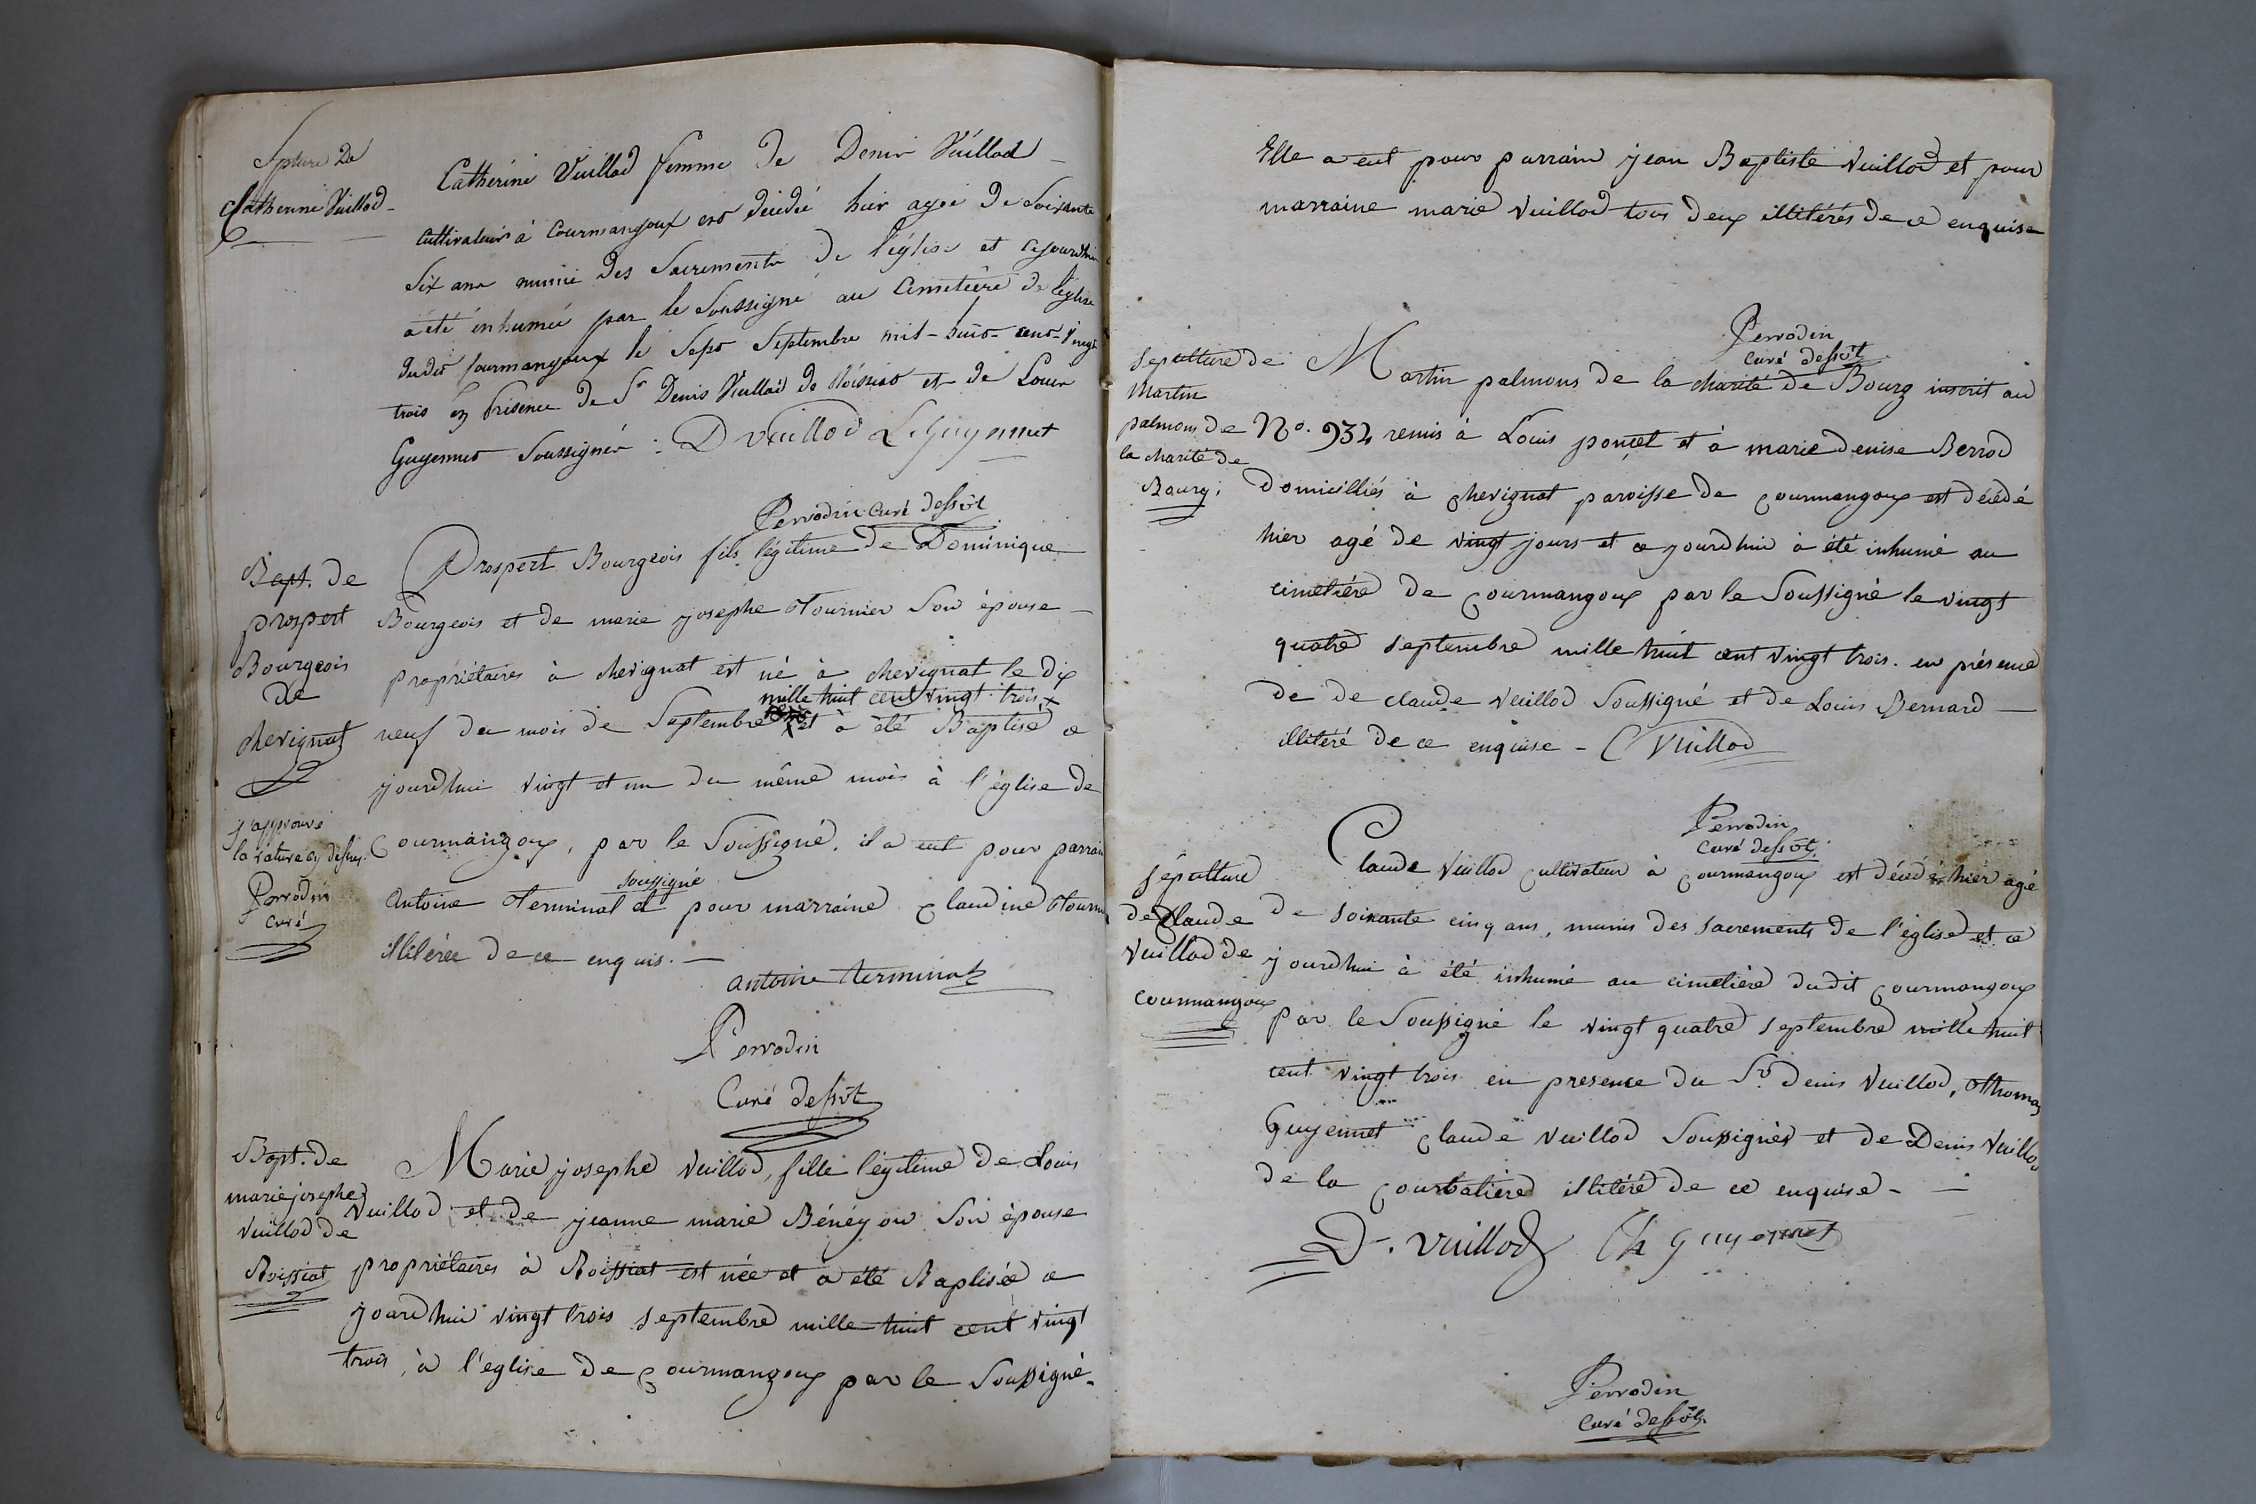 Spture de
Catherine Vuillod
Catherine Vuillod femme de Denis Vuillod
cultivateur à Courmangoux est décédée hier agée de Soixante
Six ans munie des Sacrements de l'église et cejourdhui
a été inhumée par le Soussigné au Cimetière de l'église
dudit Courmangoux le Sept Septembre mil-huit-cent-vingt
trois en Présence de Sr Denis Vuillod de Roissiat et de Louis
Guyennet Soussignés : D vuillod L Guyennet
Perrodin Curé dessst
Bapt. de
prospert
Bourgeois
de
chevignat
Prospert Bourgeois fils légitime de Dominique
Bourgeois et de marie josephe Tournier Son épouse
propriétaires à chevignat est né à chevignat le dix
mille huit cent vingt trois
neuf du mois de Septembre et à été Baptisé ce
jourdhui vingt et un du même mois à l'église de
Courmangoux, par le Soussigné, il a eut pour parrain
soussigné
antoine Terminat et pour marraine claudine Tourni
illitérée de ce enquis.
j'approuve
la rature cy dessus.
Perrodin
Curé
antoine terminat
Perrodin
Curé dessst
Bapt. de
marie josephe
Vuillod de
Roissiat
Marie josephe Vuillod, fille légitime de Louis
Vuillod et de jeanne marie Bénéyon Son épouse
propriétaires à Roissiat est née et a été Baptisée ce
jourdhui vingt trois septembre mille huit cent vingt
trois, à l'église de Courmangoux par le Soussigné.
Elle a eut pour parrain jean Baptiste Vuillod et pour
marraine marie Vuillod tous deux illitérés de ce enquise
Perrodin
Curé dessst
sepulture de
Martin
palmous de
la charité de
Bourg.
Martin palmous de la charité de Bourg inscrit au
No. 934 remis à Louis poncet et à marie denise Berrod
Domiciliés à chevignat paroisse de Courmangoux est décédé
hier agé de vingt jours et ce jourdhui à été inhumé au
cimetière de Courmangoux par le Soussigné le vingt
quatre septembre mille huit cent vingt trois. en présence
de de claude Vuillod Soussigné et de Louis Bernard
illitéré de ce enquise - C Vuillod
Perrodin
Curé dessst.
sépulture
de Claude
Vuillod de
courmangoux
Claude Vuillod Cultivateur à Courmangoux est décédé hier agé
de soixante cinq ans, munis des sacrements de l'église et ce
jourdhui à été inhumé au cimetière dudit Courmangoux
par le Soussigné le vingt quatre septembre mille huit
cent vingt trois en presence du Sr. denis Vuillod, Thomas
Guyennet Claude Vuillod Soussignés et de Denis Vuillod
de la Courbatière illitéré de ce enquise -
D. Vuillod Th Guyennet
Perrodin
Curé dessst.